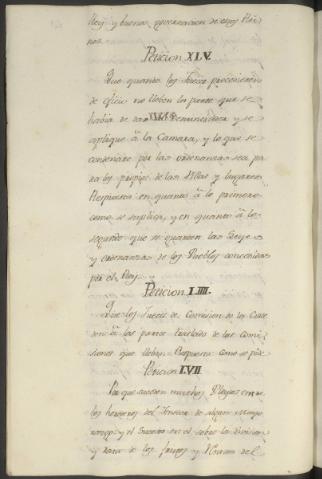 Rey y buena governacion de estos Rei-
nos.
Peticion XLV.
Que quando los Jueces procedieren
de oficio no lleben la parte que se
havia de dar al Denunciador y se
aplique à la Camara, y lo que se
condenare por las ordenanzas sea pa
ra los propios de las Villas y lugares
Respuesta en quanto à lo primero
como se suplica, y en quanto à lo
segundo que se guarden las Leyes
y ordenanzas de los Pueblos concedidas
por el Rey.
Peticion LIIII.
Que los Jueces de Comision no los
den à las partes traslado de las Comi
siones que lleban. Respuesta como se pide
Peticion LVII.
Por que suceden muchos Pleytos entre
los herederos del Tenedor de algun Mayo
razgo y el Sucesor en el sobre la Division
y rata de los frutos y Rentas del